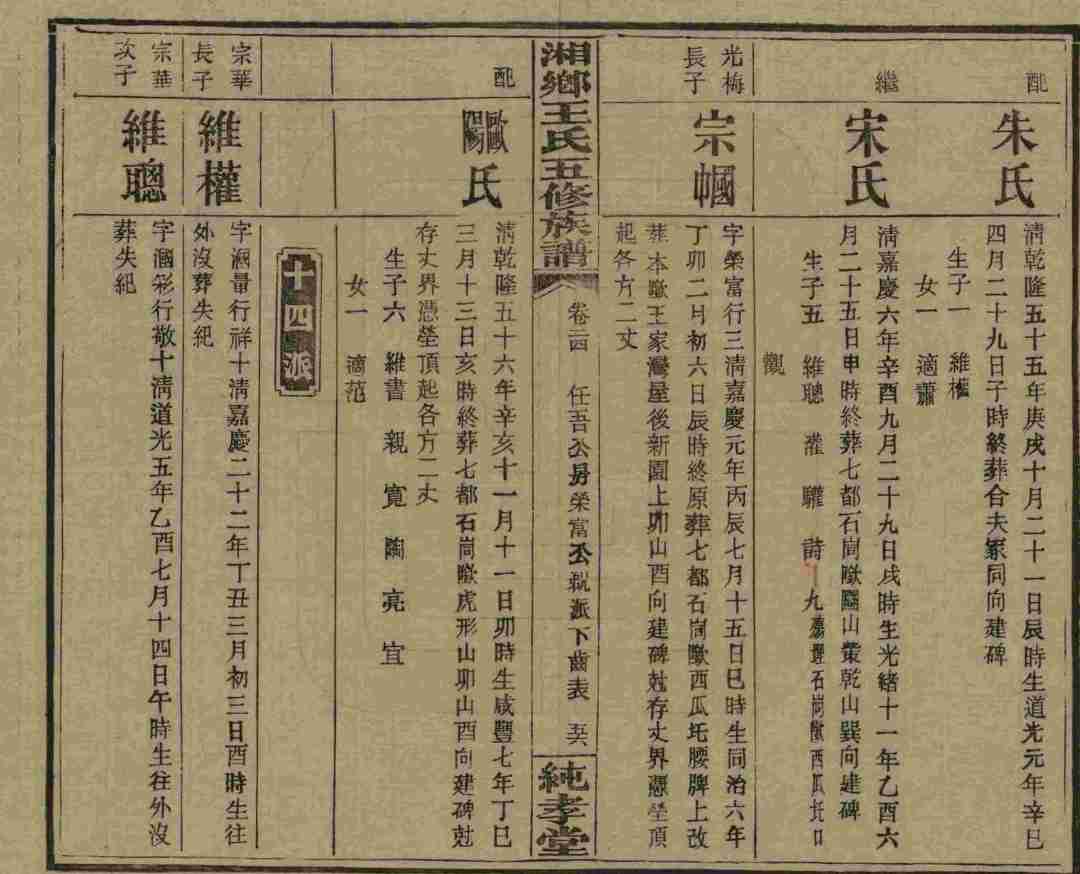 配
朱氏
清乾隆五十五年庚戌十月二十一日辰時生道光元年辛巳
四月二十九日子時終葬合夫冢同向建碑
生子一 維權
女一 適蕭
繼
宋氏
清嘉慶六年辛酉九月二十九日戌時生光緒十一年乙酉六
月二十五日申時終葬七都石崗㘓山乾山巽向建碑
生子五 維聰 詩 九 石崗㘓西瓜圫口
觀
光梅
長子
宗幗
字榮富行三清嘉慶元年丙辰七月十五日巳時生同治六年
丁卯二月初六日辰時終原葬七都石崗㘓西瓜圫腰脾上改
葬本㘓王家灣屋後新園上卯山酉向建碑尅存丈界憑塋頂
起各方二丈
湘鄉王氏五修族譜
卷二四 任吾公房榮富公親派下齒表
純孝堂
配
歐陽氏
清乾隆五十六年辛亥十一月十一日卯時生咸豐七年丁巳
三月十三日亥時終葬七都石崗㘓虎形山卯山酉向建碑尅
存丈界憑塋頂起各方二丈
生子六 維書 親 寬 陶 亮 宜
女一 適范
十四派
宗華
長子
維權
字涸量行祥十清嘉慶二十二年丁丑三月初三日酉時生往
外沒葬失紀
宗華
次子
維聰
字涸彩行敬十清道光五年乙酉七月十四日午時生往外沒
葬失紀